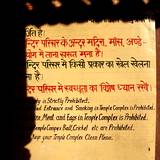 र्जित है।
मन्दिर परिसर के अन्दर मदिरा, माँस, अण्डे
योग में लाना सख्त मना है।
मन्दिर परिसर में किसी प्रकार का खेल खेलना
है।
मन्दिर परिसर में स्वच्छता का विशेष ध्यान रखें।
is Strictly Prohibited.
Entrance and Smoking in Temple Complex is Prohibited.
Meat and Eggs in Temple Complex is Prohibited.
Temple Complex Ball, Cricket etc are Prohibited.
Keep your Temple Complex Clean Please.